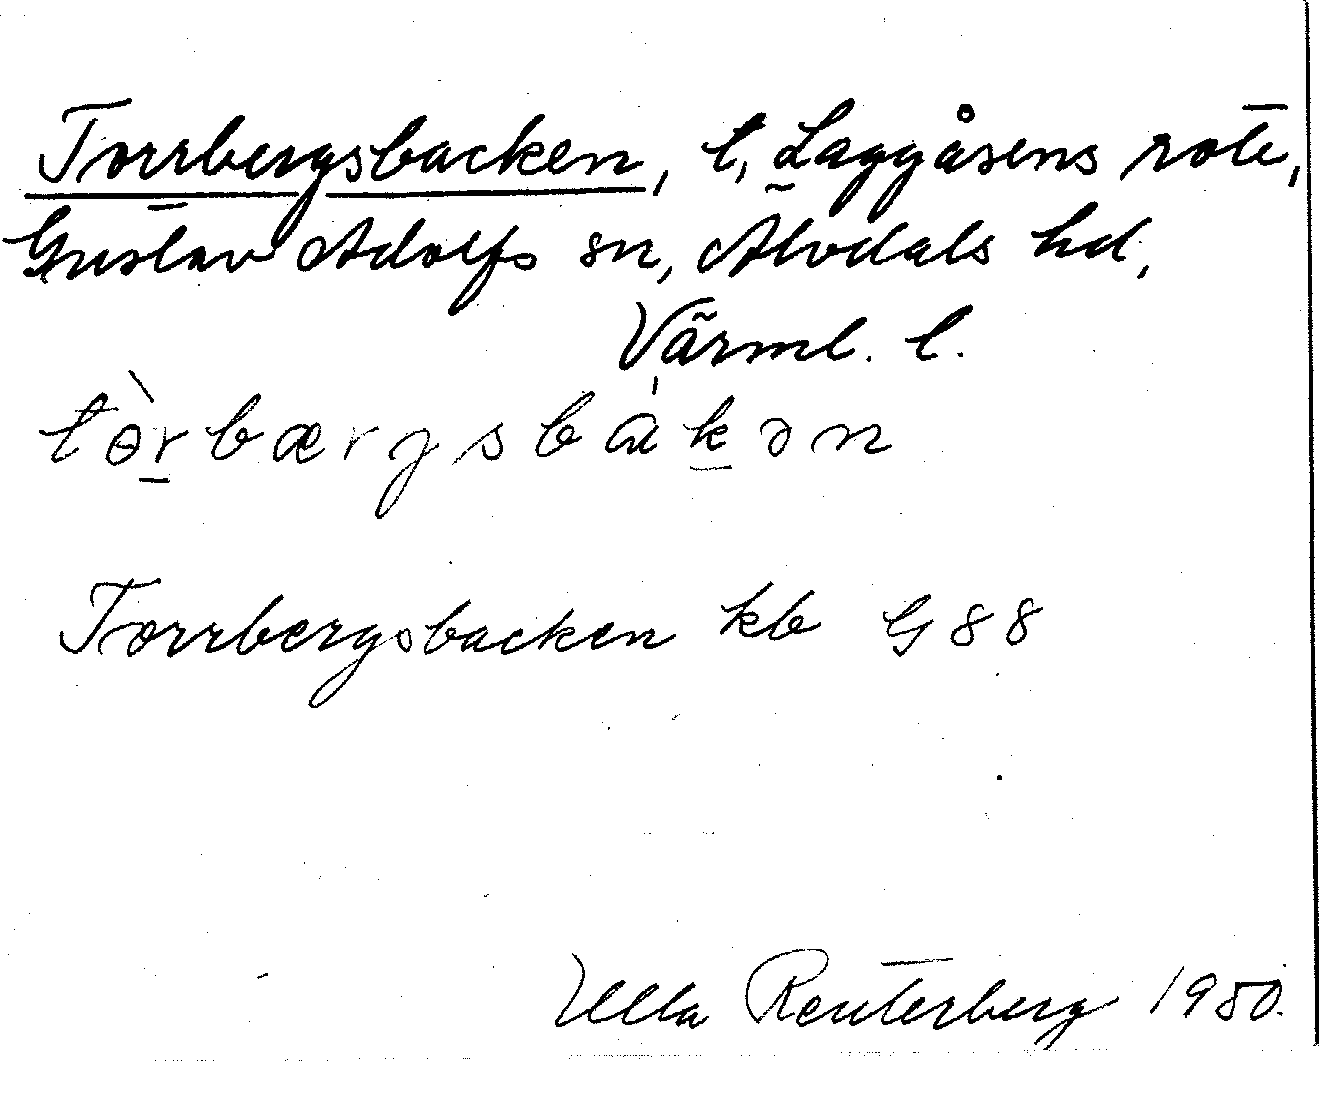 Torrbergsbacken, t, Laggåsens rote,
Gustav Adolfs sn, Älvdals hd,
Värml. l.
tɵ̀r̲bærgsbàk̲ən
Torrbergsbacken kb G 88
Ulla Reuterberg 1950.